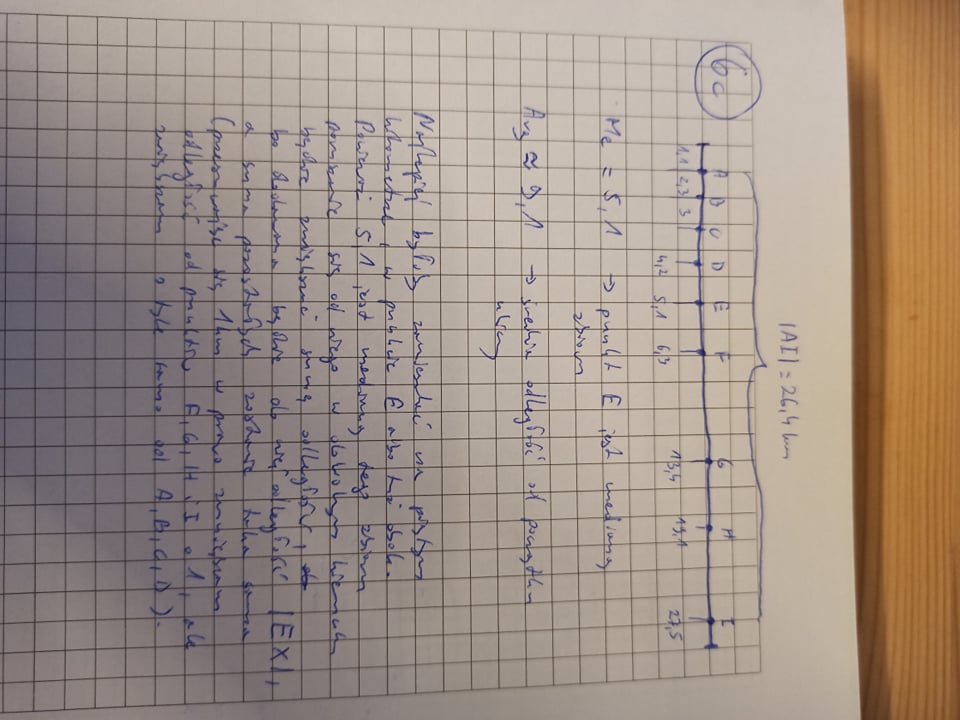 6c
|AI| = 26,4 km
A B C D E F G H I
1,1 2,3 3 4,2 5,1 6,3 13,4 19,1 27,5
Me = 5,1 → punkt E jest medianą
zbioru
Avg ≈ 9,1 → średnia odległość od początku
ulicy
Najlepiej byłoby zamieszkać na piątym
kilometrze, w punkcie E albo tuż obok.
Ponieważ 5,1 jest medianą tego zbioru
poruszanie się od niego w dowolnym kierunku
będzie zwiększać sumę odległości,
bo dodawana będzie do niej odległość |EX|,
a suma pozostałych zostanie taka sama
(przesunięcie się 1km w prawo zmniejszam
odległość od punktów F, G, H i I o 1, ale
zwiększam o tyle samo od A, B, C, D).